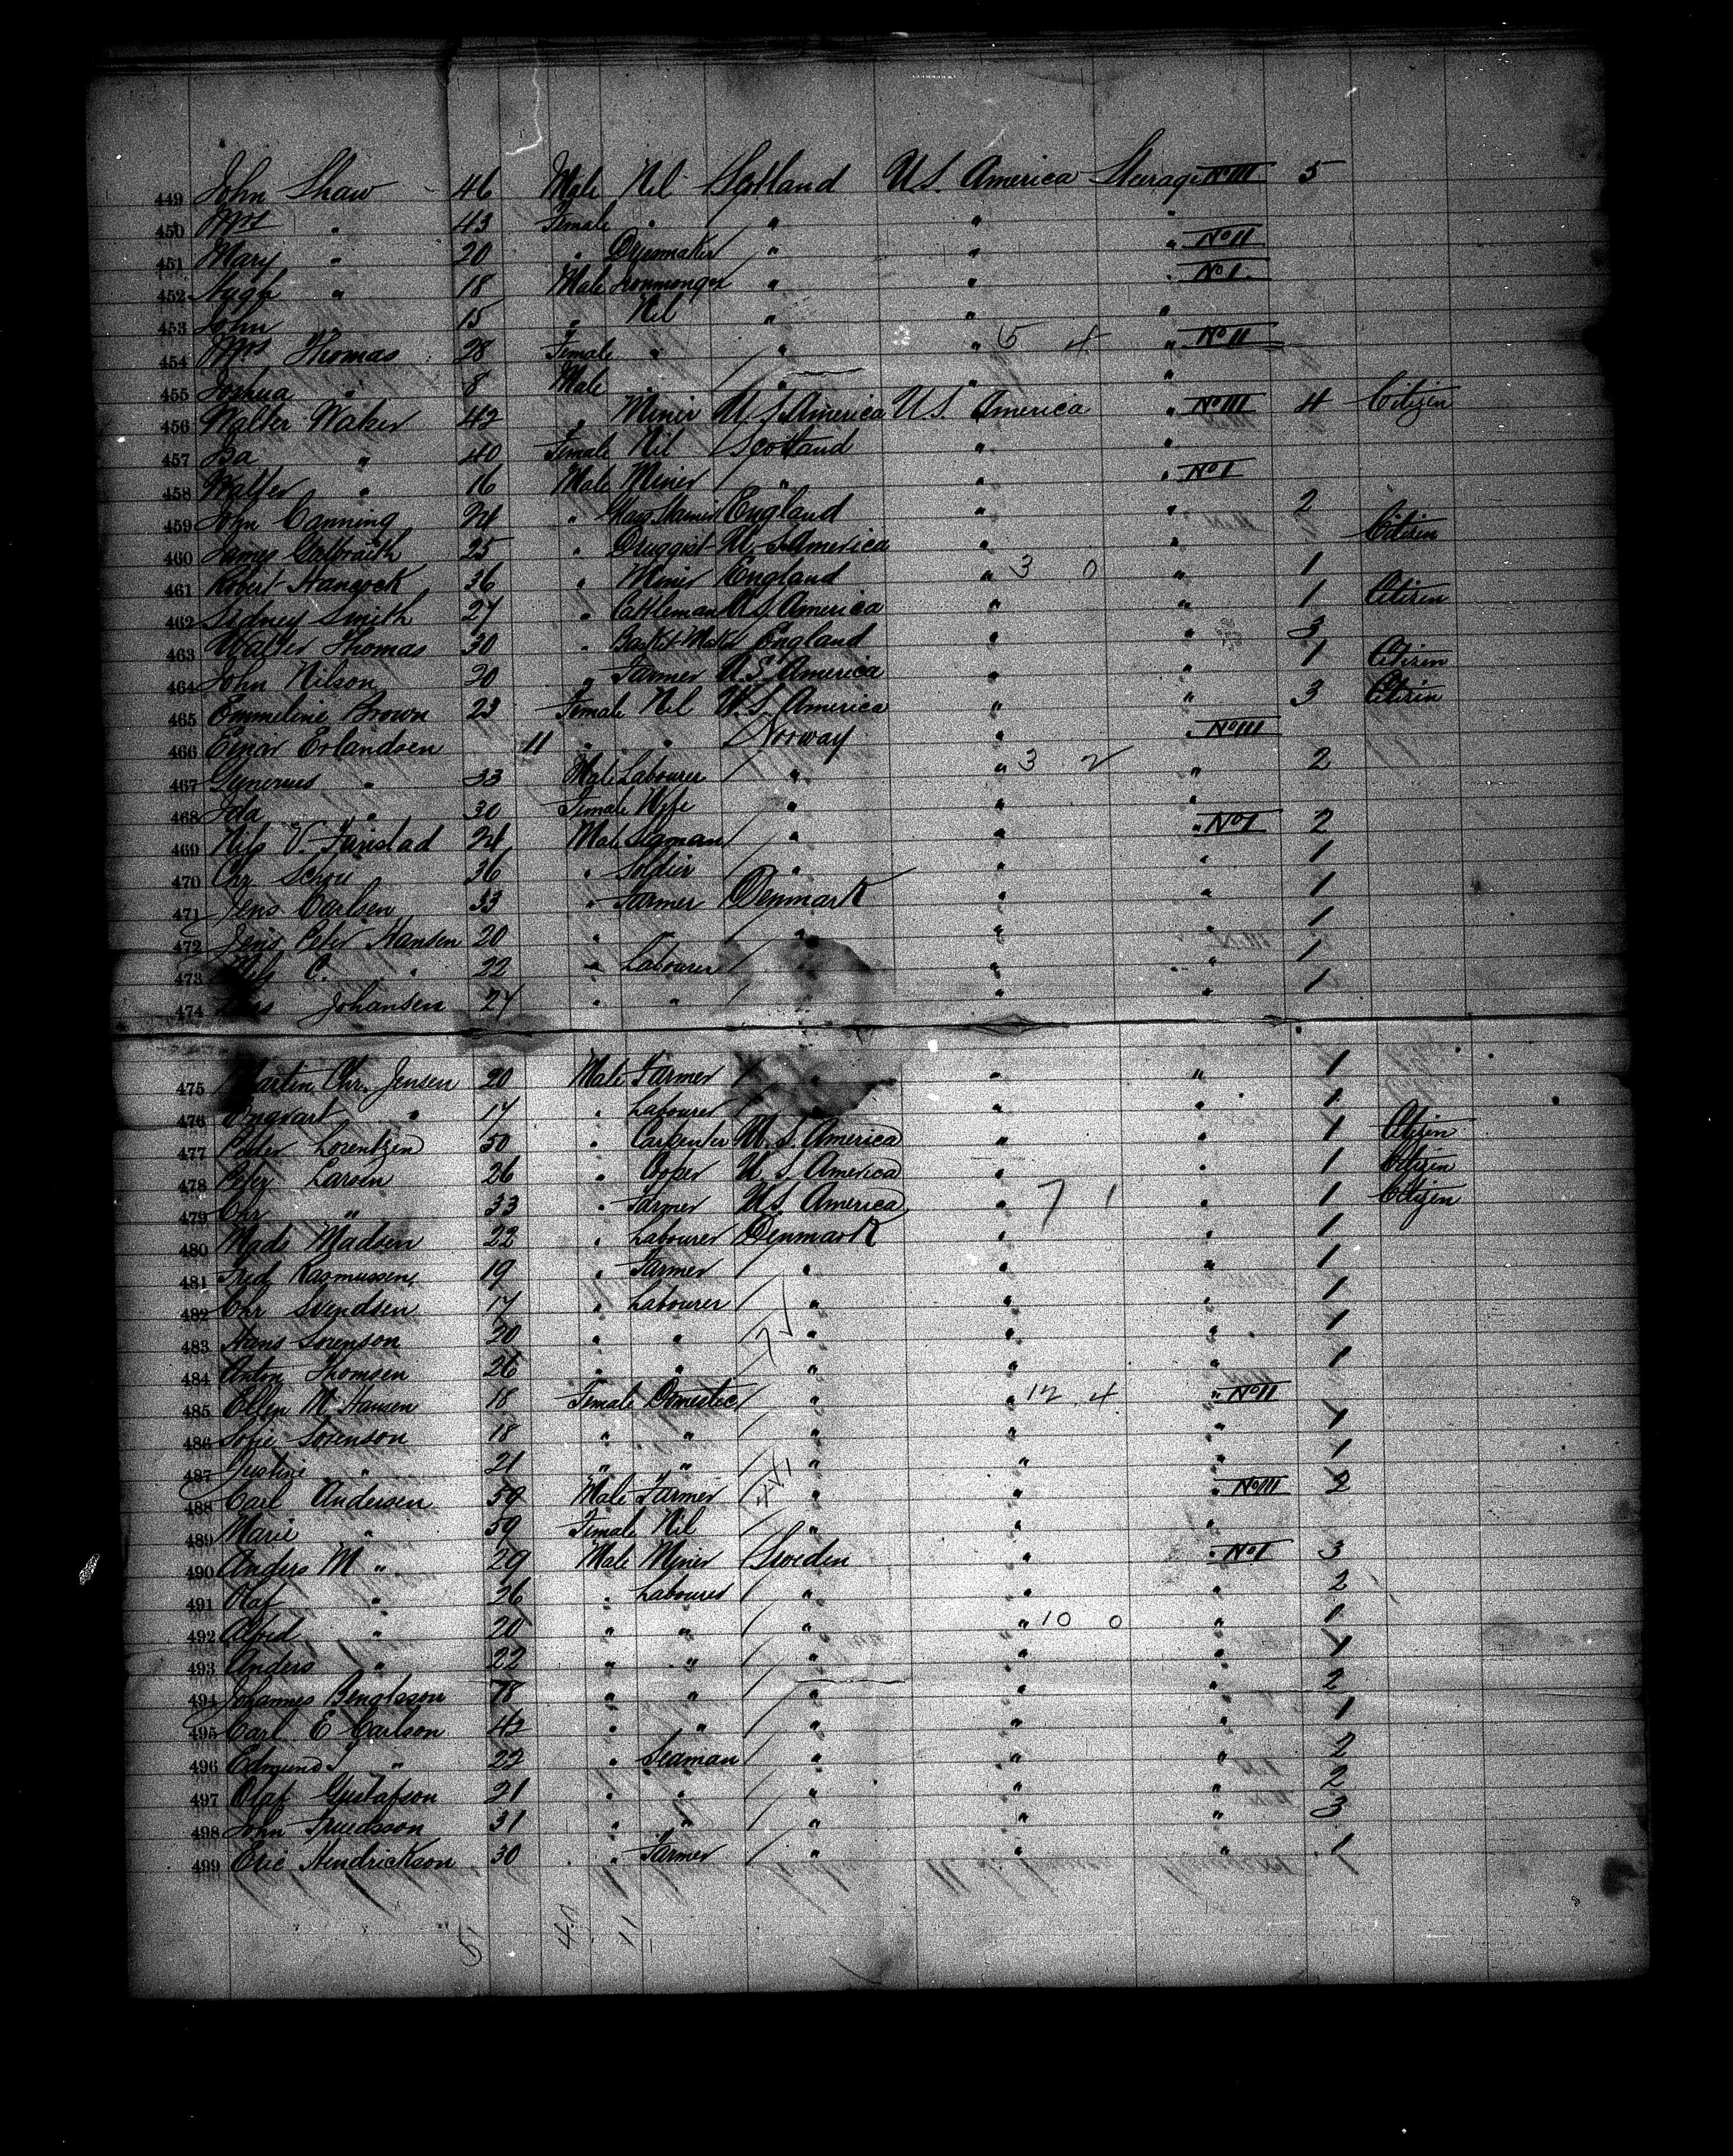 449 John Shaw 46 Male Nil Scotland U.S. America Steerage No III 5
450 Mrs " 43 Female " " " "
451 Mary " 20 " Dressmaker " " " No II
452 Hugh " 18 Male Ironmonger " " " No I
453 John 15 " Nil " " "
454 Mrs Thomas 28 Female " " " 5 4 " No II
455 Joshua " 8 Male " " " "
456 Walter Waker 42 " Miner U.S. America U.S. America " No III 4 Citizen
457 Isa " 40 Female Nil Scotland " "
458 Walter " 16 Male Miner " " " No I
459 John Canning 24 " England " " 2
460 James Galbraith 25 " Druggist U.S. America " " Citizen
461 Robert Hancock 36 " Miner England " 3 0 " 1
462 Sidney Smith 27 " Cattleman U.S. America " " 1 Citizen
463 Walter Thomas 30 " Basket Maker England " " 3
464 John Nilson 20 " Farmer U.S. America " " 1 Citizen
465 Emmeline Brown 23 Female Nil U.S. America " " 3 Citizen
466 Einar Erlandsen 11 " " Norway " " No III
467 " 33 Male Labourer " " 3 2 " 2
468 Ida " 30 Female Wife " " "
469 Nils V. 24 Male Seaman " " " No I 2
470 Chr 36 " Soldier " " " 1
471 Jens Carlsen 33 " Farmer Denmark " " 1
472 Jens Peter Hansen 20 " " " " " 1
473 Nils C. " 22 " Labourer " " 1
474 Johansen 24 " " " " " 1
475 Martin Chr. Jensen 20 Male Farmer " " 1
476 Engvart " 17 " Labourer " " 1
477 Peder Lorentzen 50 " Carpenter U.S. America " " 1 Citizen
478 Peter Larsen 26 " Cooper U.S. America " " 1 Citizen
479 Chr " 33 " Farmer U.S. America " 7 1 " 1 Citizen
480 Mads Madsen 22 " Labourer Denmark " " 1
481 Fred Rasmussen 19 " Farmer " " " 1
482 Chr Svendsen 17 " Labourer " " " 1
483 Hans Sorenson 20 " " " " " 1
484 Anton Thomsen 26 " " " " " 1
485 Ellen M. Hansen 18 Female Domestic " " 12 4 " No II
486 Sofie Sorenson 18 " " " " " 1
487 Justine " 21 " " " " " 1
488 Carl Andersen 59 Male Farmer " " " No III 2
489 Marie " 59 Female Nil " " "
490 Anders M " 29 Male Miner Sweden " " No I 3
491 Olaf " 26 " Labourer " " " 2
492 Alfred " 20 " " " " 10 0 " 1
493 Anders " 22 " " " " " 1
494 Johannes Bengtsson 78 " " " " " 2
495 Carl E Carlson 42 " " " " " 1
496 Edmund J " 22 " Seaman " " " 2
497 Olaf Gustafson 21 " " " " " 2
498 John Truedsson 31 " " " " " 3
499 Eric Hendrickson 30 " Farmer " " " 1
51 40 11